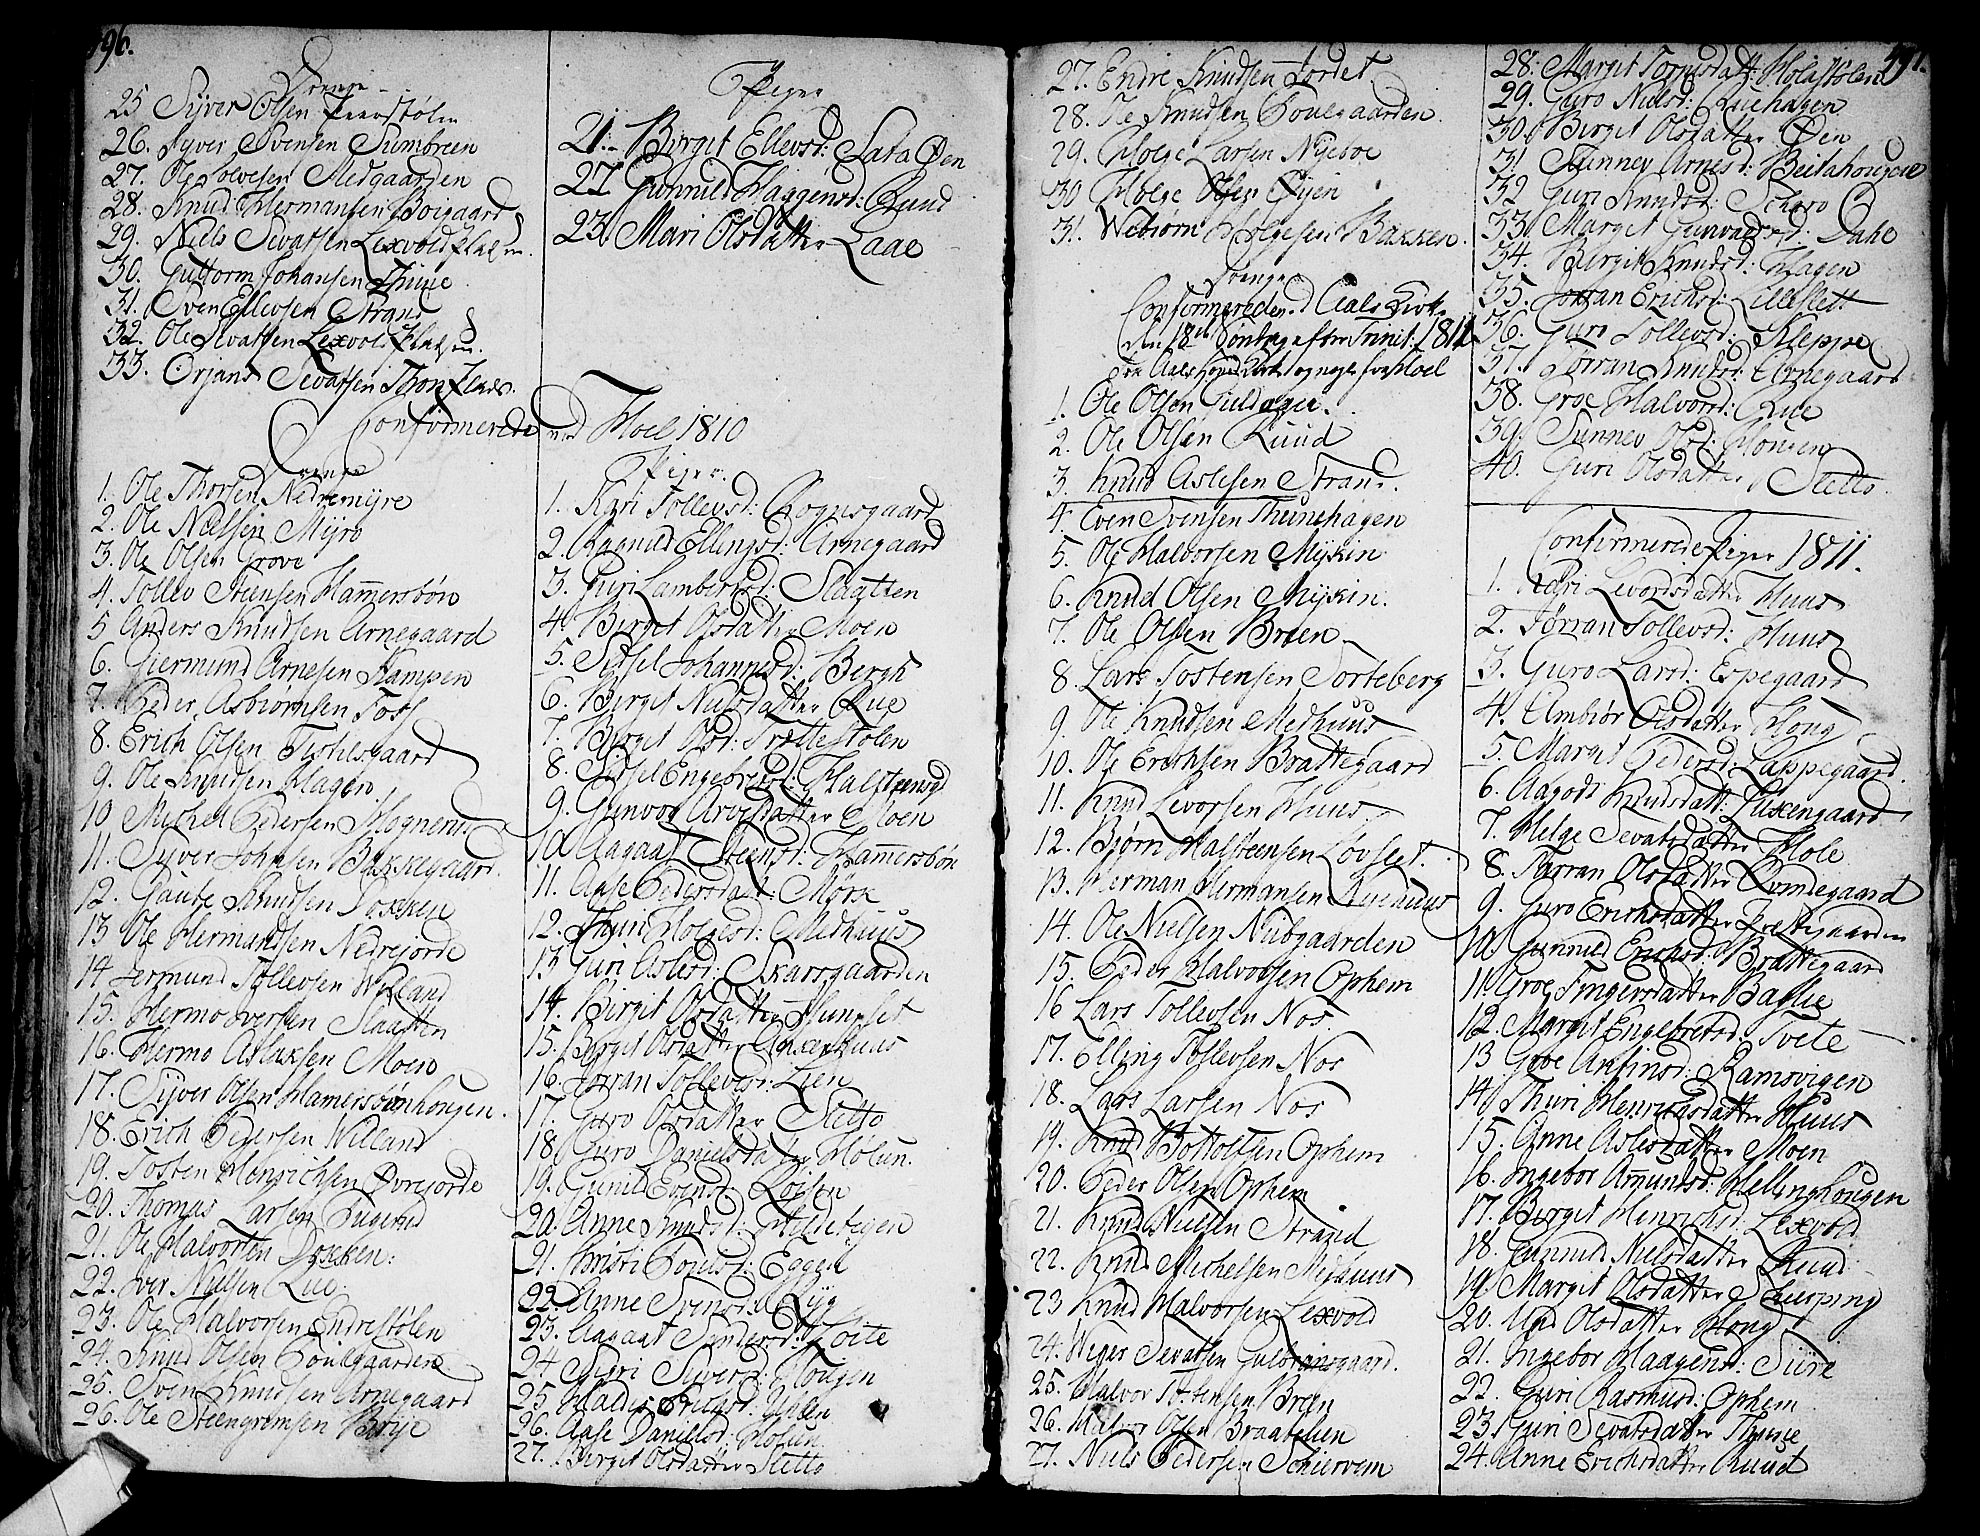 96.
Drenge
25 Syver Olsen Perrstølen
26. Syver Svensen Sumbreen
27. Ole Solvesen Medgaarden
28. Knud Hermansen Boigaard
29. Niels Sevatsen Lexvold Pladsen
30. Guttorm Johansen Thune
31. Sven Ellevsen Strand
32. Ole Sevatsen Lexvold Pladsen.
33. Orjans Sevatsen Thon Plads.
Piger
21. Birgit Ellevsd: Lata Øen
22 Gunnuld Haagensd: Ruud
23. Mari Olsdatter Laae
Confirmerede ved Hoel 1810
Drenge
1. Ole Thorsen Nedremyre
2. Ole Nielsen Myro
3. Ole Olsen Grove
4. Tollev Steensen Hamersbøn
5 Anders Knudsen Arnegaard
6. Giermund Arnesen Kampen
7. Peder Asbiørnsen Foss
8. Erich Olsen Tischelsgaard
9. Ole Knudsen Hagen.
10 Michel Pedersen Hognerud
11. Syver Johnsen Bakkegaard.
12. Gaute Knudsen Dokken
13 Ole Hermandsen Nedrejorde
14 Jermund Tollevsen Villand
15. Hermo Iversen Slaatten
16. Hermo Aslaksen Moen
17. Syver Olsen Hamersbønhougen.
18. Erich Pedersen Villand
19. Tosten Henrichsen Øvrejorde
20. Thomas Larsen Tugerud
21. Ole Halvorsen Dokken:
22. Iver Nielsen Rue.
23. Ole Halvorsen Endrestølen
24. Knud Olsen Poulgaarden
25. Sven Knudsen Arnegaard
26. Ole Steengrimsen Brye
Piger.
1. Kari Tollevsd: Rognsgaard
2. Ragnild Ellingsd: Arnegaard
3. Guri Lambertsd: Slaatten
4. Birget Olsdatter Moen
5. Sidsel Johannesd: Bergh
6. Birget Nielsdatter Rue
7. Birget Olsd: Trøllestølen
8. Sidsel Engebretsd: Halsteensgd
9. Gunvor Arvesdatter Moen
10. Aagaat Steensd: Hamersbøn
11. Aase Pedersdatt: Mørk
12. Thuri Holgesd: Medhuus
13 Guri Aslesd: Skarsgaarden
14. Birgit Olsdatter Sunnset
15. Birget Olsdatter
16. Jorran Tollevsd: Lien
17. Guro Olsdatter Sletto
18. Guro Danielsdatter Holun.
19. Gunild Evensd: Roisen
20. Anne Knudsd: Holdebegen
21. Kristi Povelsd: Eggen
22. Anne Svensd: Ryg
23. Aagaat Syndersd: Loite
24 Sigri Syversd: Hougen
25. Haldis Erichsd: Uglen
26. Aase Danielsd: Holun
27. Birget Olsdatter Sletto
27. Endre Knudsen Jordet.
28. Ole Knudsen Poulsgaarden.
29. Holge Larsen Nyeboe
30 Holge Olsen Øyen
31. Webiørn Holgesen Bakken.
Drenge
Confirmerede v. Aals Kirke
den 18de Søndag efter Trinit: 1811
fra Aals Hoved Kirke og nogle fra Hoel
1. Ole Olsen Guldager.
2. Ole Olsen Ruud
3. Knud Aslesen Strand.
4. Even Svensen Thunehagen
5. Ole Halvorsen Myking
6. Knud Olsen Myking.
7. Ole Olsen Breen
8. Lars Tostensen Torteberg
9. Ole Knudsen Medhuus
10. Ole Erichsen Brattegaard
11. Knud Levorsen Huus
12. Biørn Halsteensen Løvseget.
13. Herman Hermansen Ruehuus
14. Ole Nielsen Nubgaarden
15. Peder Halvorsen Ophem
16 Lars Tollevsen Nos.
17. Elling Tollevsen Nos
18. Lars Larsen Nos
19. Knud Bottolfsen Ophem
20. Peder Olsen Ophem
21. Knud Nielsen Strand
22. Knud Michelsen Medhuus
23 Knud Halvorsen Lexvold
24. Weger Sevatsen Gulbransgaard.
25. Halvor Tostensen Breen
26. Halvor Olsen Braatelien
27. Niels Pedersen Schiervem
28. Margit Tormsdatt: Holastølen
29. Guro Nielsd: Ruehagen
30. Birget Olsdatter Øen
31 Sunnev Arnesd: Beitahougen
32 Guri Knudsd: Schoro
33 Margit Gunvaldsd: Dahl
34. Birgit Knudsd: Hagen
35. Jorran Erichsd: Lilleslett
36. Guro Tollevsd: Kleppe
37. Torran Knudsd: Arnegaard
38. Groe Halvorsd: Rue
39. Sunnev Olsd: Housen
40. Guri Olsdatter Sletto.
Confirmerede Piger 1811.
1. Kari Levordsdatter Huus
2. Jorran Tollevsd: Huus
3. Guro Larsd: Espegaard
4. Ambiør Olsdatter Hong
5. Margit Pedersd: Lappegaard.
6. Aagods Knudsdatt: Luxengaard
7. Helge Sevatsdatter Hole
8. Narran Olsdatter Qvindegaard
9. Guro Erichsdatter Prestegaarden
10. Gunnild Erichsd: Brattegaard
11. Groe Tingersdatter Baslie
12. Margit Engebretsd: Tvete
13 Groe Arfinsd: Ramsvigen
14. Thuri Henrichsdatter Huus
15. Anne Aslesdatter Moen
16. Ingebor Amundsd: Hellinghougen
17. Birget Henrichsd: Lexvold
18. Gunnild Nielsdatter Ruud
19. Margit Olsdatter Skierping
20. Und Olsdatter Hong
21. Ingebor Haagensd: Siire
22. Guri Rasmusd: Ophem
23. Guri Sevatsdatter Thune
24. Anne Erichsdatter Ruud